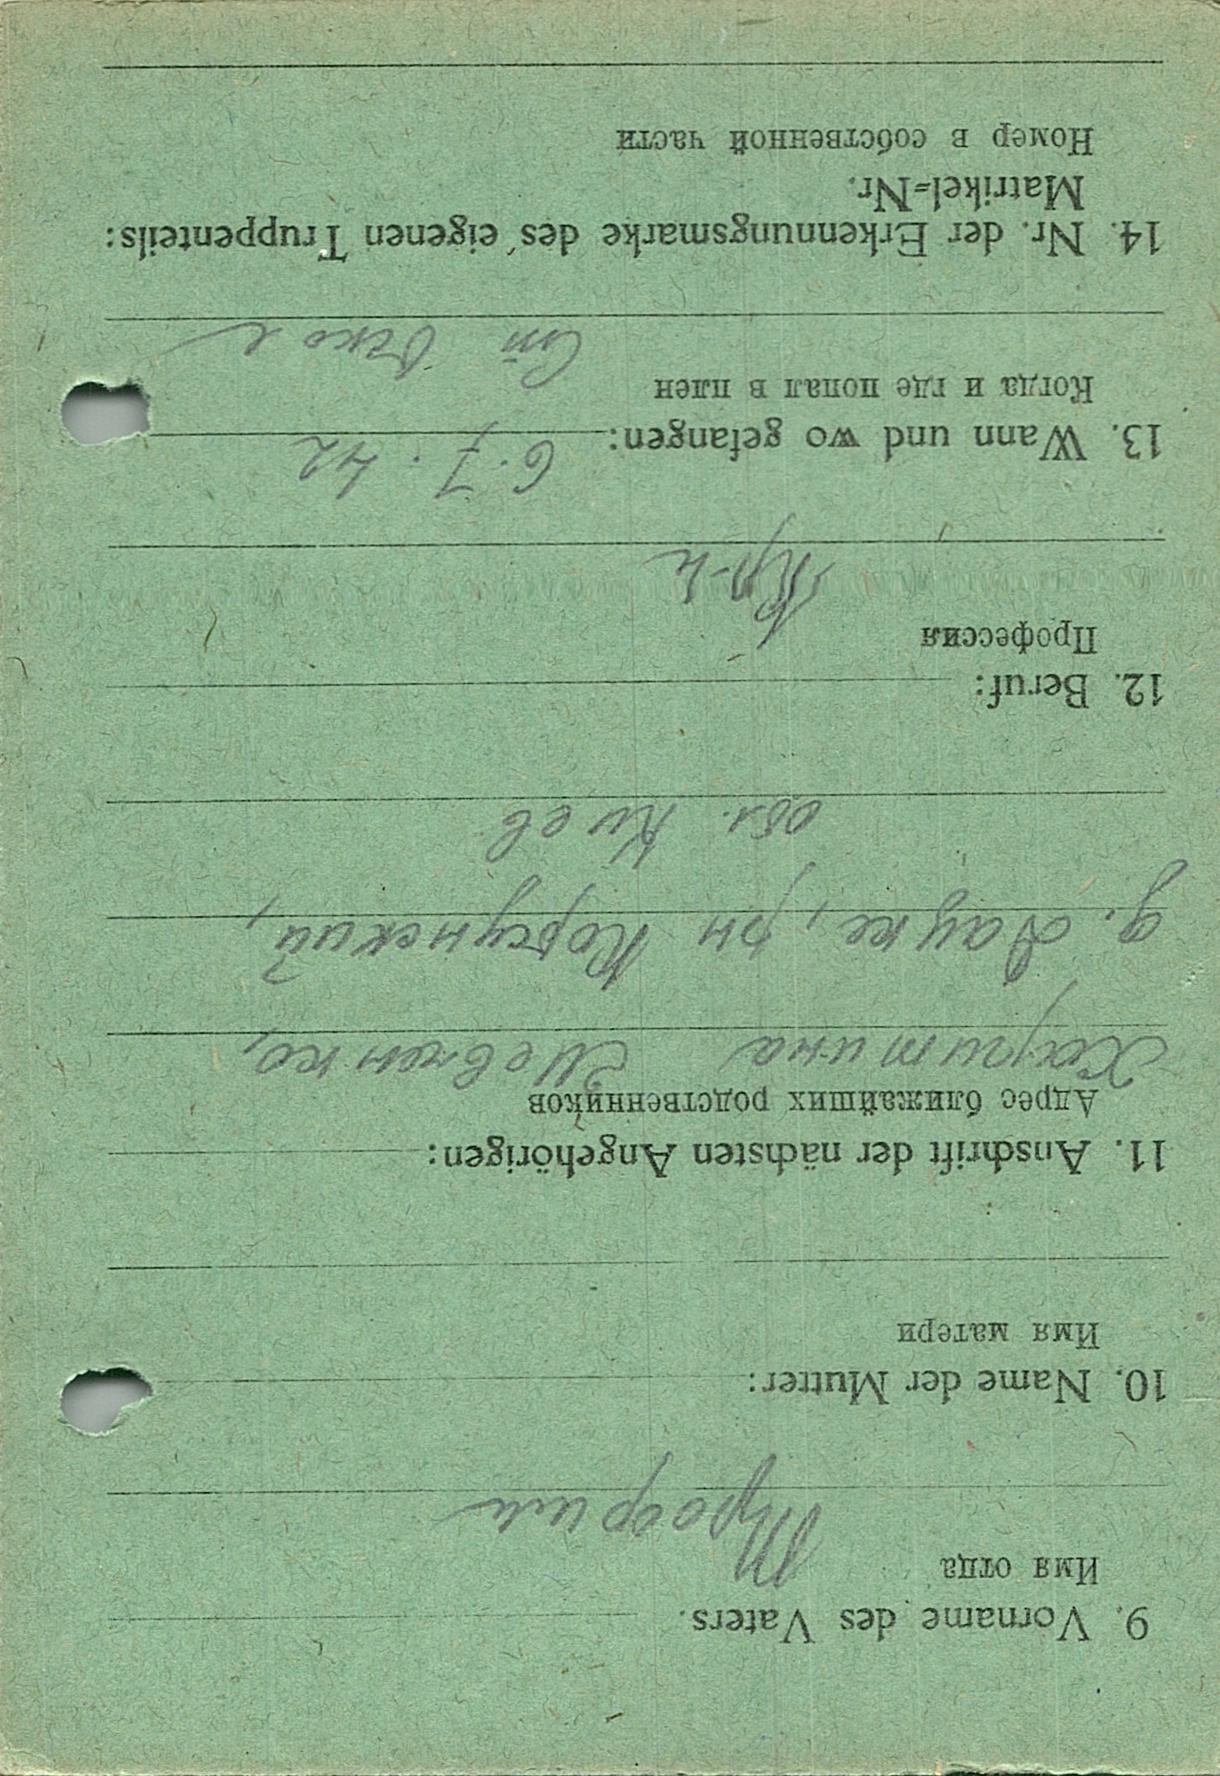 9. Vorname des Vaters.
Имя отца
Трофим
10. Name der Mutter:
Имя матери
11. Anschrift der nächsten Angehörigen:
Адрес ближайших родственников
Харитина Шевченко,
д. рн Корсунский,
обл. Киев
12. Beruf:
Профессия
Кр-н
13. Wann und wo gefangen: 6.7.42
Когда и где попал в плен
Ст Оскол
14. Nr. der Erkennungsmarke des eigenen Truppenteils:
Matrikel=Nr.
Номер в собственной части